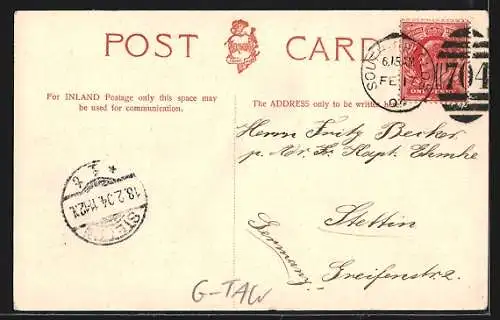 POST CARD
For INLAND Postage only this space may
be used for communication.
The ADDRESS only to be written
6.15 AM
FE
704
ONE PENNY
Herrn Fritz Becker
p. Adr. Fr. Kapt. Ehmke
Stettin
Germany
Greifenstr. 2.
18.2.04.11-12.V.
STET
G-TAW